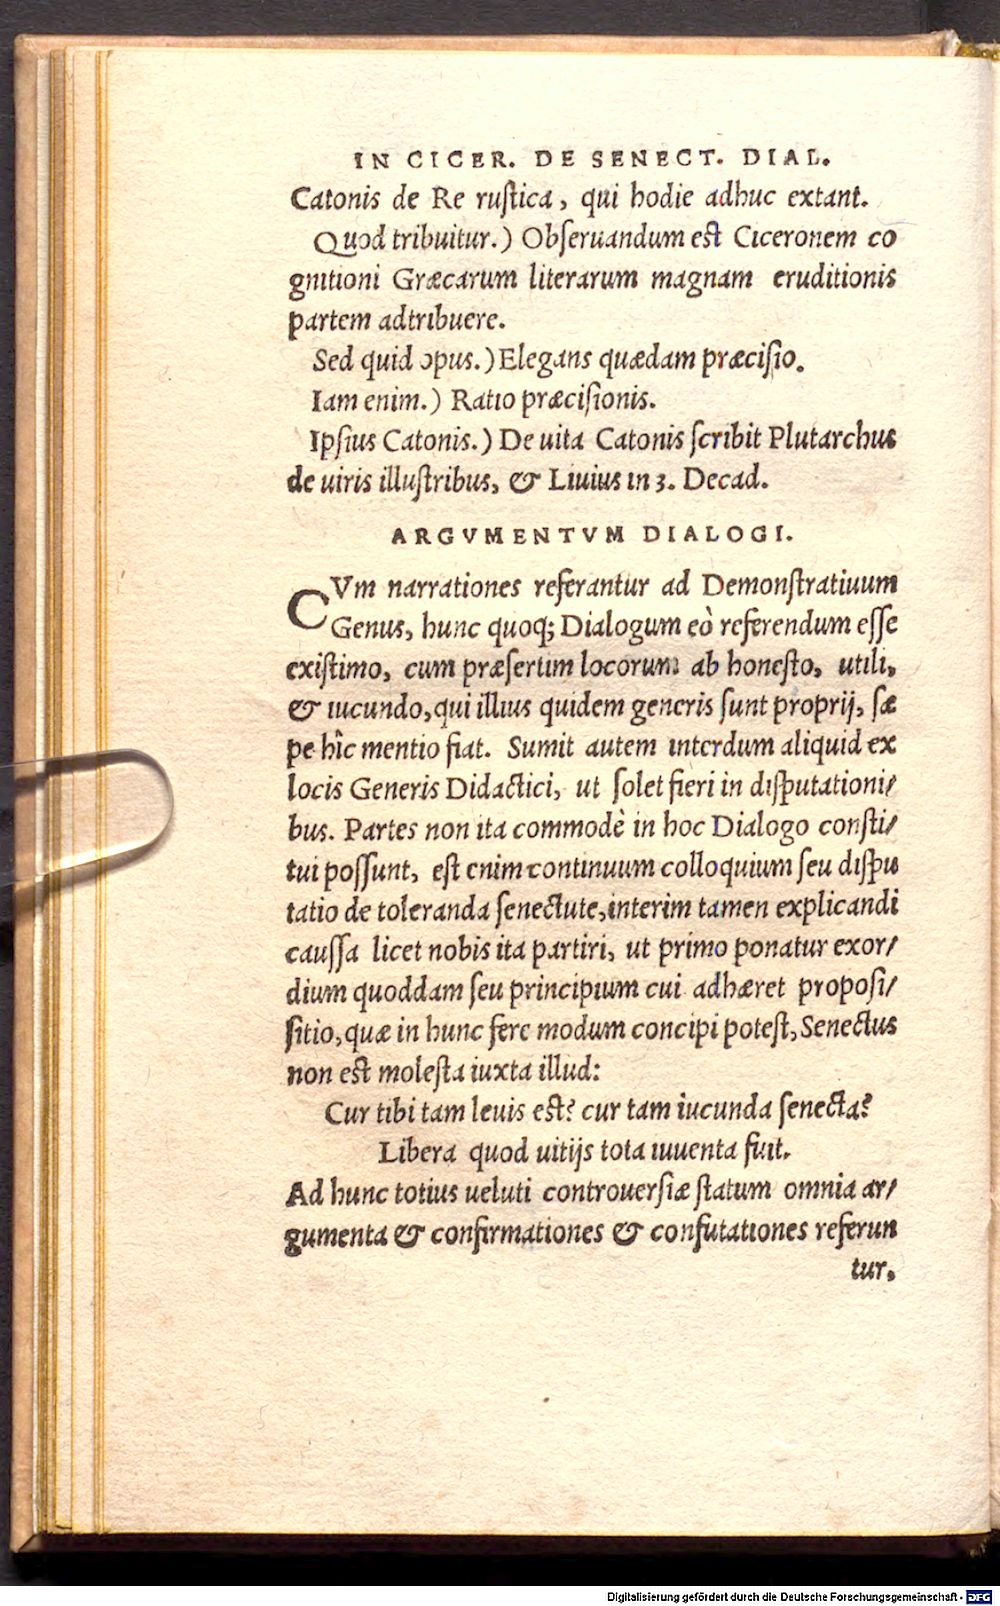 IN CICER. DE SENECT. DIAL.
Catonis de Re rustica, qui hodie adhuc extant.
Quod tribuitur.) Obseruandum est Ciceronem co
gnitioni Græcarum literarum magnam eruditionis
partem adtribuere.
Sed quid opus.) Elegans quædam præcisio.
Iam enim.) Ratio præcisionis.
Ipsius Catonis.) De uita Catonis scribit Plutarchus
de uiris illustribus, & Liuius in 3. Decad.
ARGVMENTVM DIALOGI.
CVm narrationes referantur ad Demonstratiuum
Genus, hunc quoq; Dialogum eò referendum esse
existimo, cum præsertim locorum ab honesto, utili,
& iucundo, qui illius quidem generis sunt proprij, sæ
pe hîc mentio fiat. Sumit autem interdum aliquid ex
locis Generis Didactici, ut solet fieri in disputationi/
bus. Partes non ita commodè in hoc Dialogo consti/
tui possunt, est enim continuum colloquium seu dispu
tatio de toleranda senectute, interim tamen explicandi
caussa licet nobis ita partiri, ut primo ponatur exor/
dium quoddam seu principium cui adhæret proposi/
sitio, quæ in hunc fere modum concipi potest, Senectus
non est molesta iuxta illud:
Cur tibi tam leuis est? cur tam iucunda senecta?
Libera quod uitijs tota iuuenta fuit.
Ad hunc totius ueluti controuersiæ statum omnia ar/
gumenta & confirmationes & confutationes referun
tur,
Digitalisierung gefördert durch die Deutsche Forschungsgemeinschaft - DFG